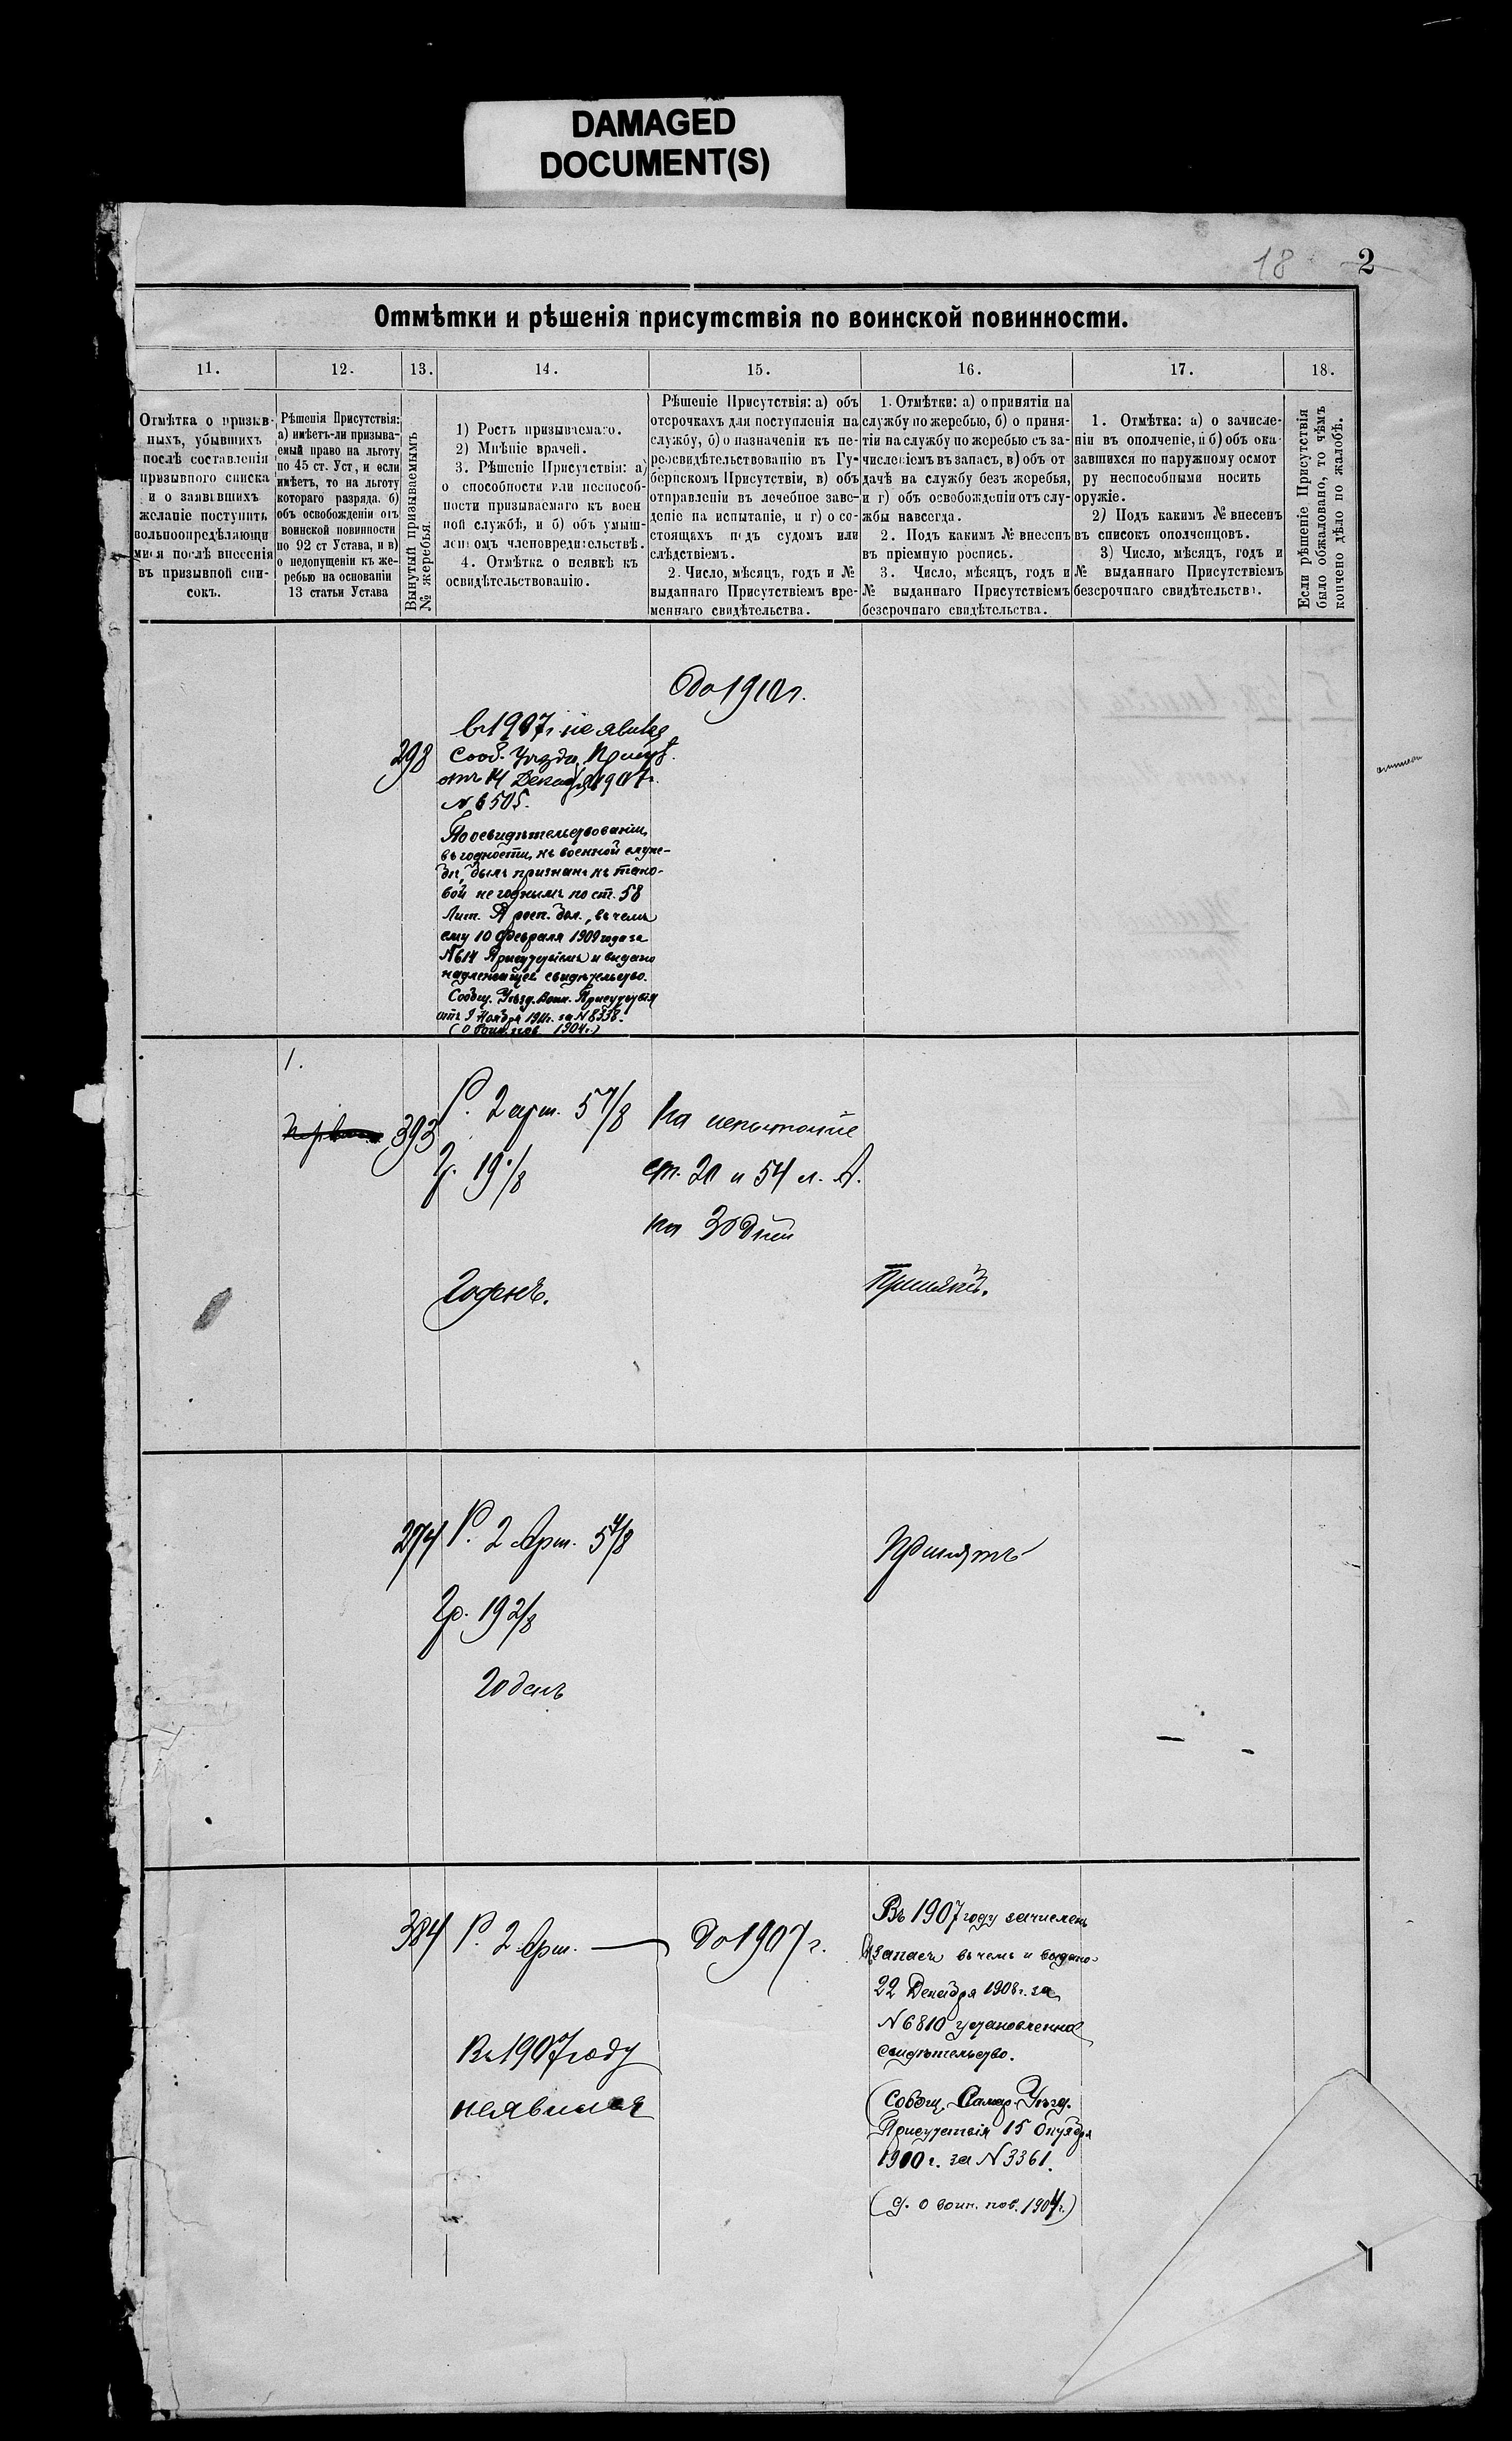 DAMAGED
DOCUMENT(S)
18 2
Отмѣтки и рѣшенія присутствія по воинской повинности.
11. 12. 13. 14. 15. 16. 17. 18.
Отмѣтка о призыв-
ныхъ, убывшихъ
послѣ составленія
призывного списка
и о заявившихъ
желаніе поступить
вольноопредѣляющи
мися послѣ внесенія
въ призывной спи-
сокъ.
Рѣшенія Присутствія:
а) имѣетъ-ли призыва-
емый право на льготу
по 45 ст. Уст, и если
имѣетъ, то на льготу
котораго разряда. б)
объ освобожденіи отъ
воинской повинности
по 92 ст Устава, и в)
о недопущеніи къ же-
ребью на основаніи
13 статьи Устава
Вынутый призываемымъ
№ жеребья.
1) Ростъ призываемаго.
2) Мнѣніе врачей.
3. Рѣшеніе Присутствія: а)
о способности или неспособ-
ности призываемаго къ воен
ной службѣ, и б) объ умыш-
ленномъ членовредительствѣ.
4. Отмѣтка о неявкѣ къ
освидѣтельствованію.
Рѣшеніе Присутствія: а) объ
отсрочкахъ для поступленія на
службу, б) о назначеніи къ пе-
реосвидѣтельствованію въ Гу-
бернскомъ Присутствіи, в) объ
отправленіи въ лечебное заве-
деніе на испытаніе, и г) о со-
стоящахъ подъ судомъ или
слѣдствіемъ.
2. Число, мѣсяцъ, годъ и №
выданнаго Присутствіемъ вре-
меннаго свидѣтельства.
1. Отмѣтки: а) о принятіи на
службу по жеребью, б) о приня-
тіи на службу по жеребью съ за-
численіемъ въ запасъ, в) объ от
дачѣ на службу безъ жеребья,
и г) объ освобожденіи отъ слу-
жбы навсегда.
2. Подъ какимъ № внесенъ
въ пріемную роспись.
3. Число, мѣсяцъ, годъ и
№ выданнаго Присутствіемъ
безсрочнаго свидѣтельства.
1. Отмѣтка: а) о зачисле-
ніи въ ополченіе, и б) объ ока-
завшихся по наружному осмот
ру неспособными носить
оружіе.
2) Подъ какимъ № внесенъ
въ списокъ ополченцовъ.
3) Число, мѣсяцъ, годъ и
№ выданнаго Присутствіемъ
безсрочнаго свидѣтельства.
Если рѣшеніе Присутствія
было обжаловано, то чѣмъ
кончено дѣло по жалобѣ.
до 1910 г.
298
въ 1907 г. не явился
Сооб. Уѣздн. Присут.
отъ 14 Декабря 1907 г.
№ 6505.
По освидѣтельствованіи,
въ годности, къ военной служ-
бѣ, былъ признанъ къ тако-
вой не годнымъ по ст. 58
Лит. А росп. бол., въ чемъ
ему 10 Февраля 1909 года за
№614 Присутствіемъ и выдано
надлежащее свидѣтельство.
Сообщ. Уѣзд. Воин. Присутствія
отъ 9 Ноября 1911г. за №8338.
(О воин. пов. 1904г.)
1.
393
Р. 2 арш. 5 7/8
Г. 19 1/8
Годенъ.
На испытаніе
ст. 20 и 54 л. А.
на 30 дней
Принятъ.
274
Р. 2 Арш. 5 4/8
Гр. 19 2/8
Годенъ
Принятъ
384
Р. 2 Арш. —
до 1907 г.
Въ 1907 году
неявился
Въ 1907 году зачисленъ
въ запасъ въ чемъ и выдано
22 Декабря 1908 г. за
№6810 установленное
свидѣтельство.
(Сообщ. Самар. Уѣзд.
Присутствія 15 Октября
1910 г. за №3361.
(Д. О воин. пов. 1904г.)